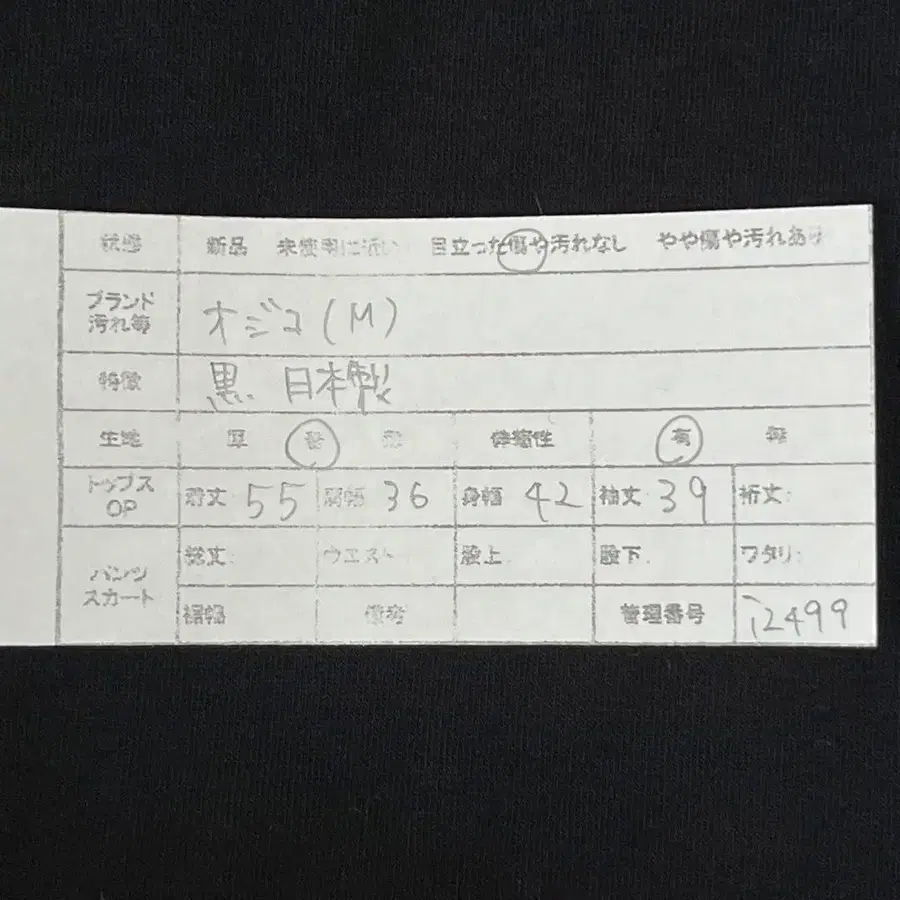 状態 新品 未使用に近い 目立った傷や汚れなし やや傷や汚れあり
ブランド
汚れ等
オジコ(M)
特徴 黒 日本製
生地 厚 普 伸縮性 有 無
トップス
OP
着丈 55 肩幅 36 身幅 42 袖丈 39 裄丈:
パンツ
スカート
総丈: ウエスト 股上 股下 ワタリ:
裾幅 備考 管理番号 i2499